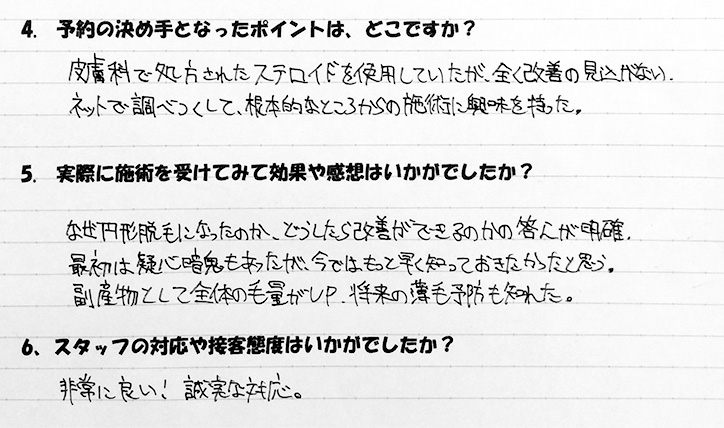 4. 予約の決め手となったポイントは、どこですか？
皮膚科で処方されたステロイドを使用していたが、全く改善の見込がない.
ネットで調べつくして、根本的なところからの施術に興味を持った。
5. 実際に施術を受けてみて効果や感想はいかがでしたか？
なぜ円形脱毛になったのか、どうしたら改善ができるのかの答えが明確.
最初は疑心暗鬼もあったが、今ではもっと早く知っておきたかったと思う。
副産物として全体の毛量がUP. 将来の薄毛予防も知れた。
6、スタッフの対応や接客態度はいかがでしたか？
非常に良い! 誠実な対応。